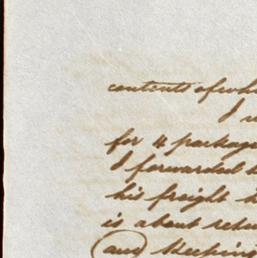 contents of
I
for 4 packages
I forwarded
his freight
is about
and keeping